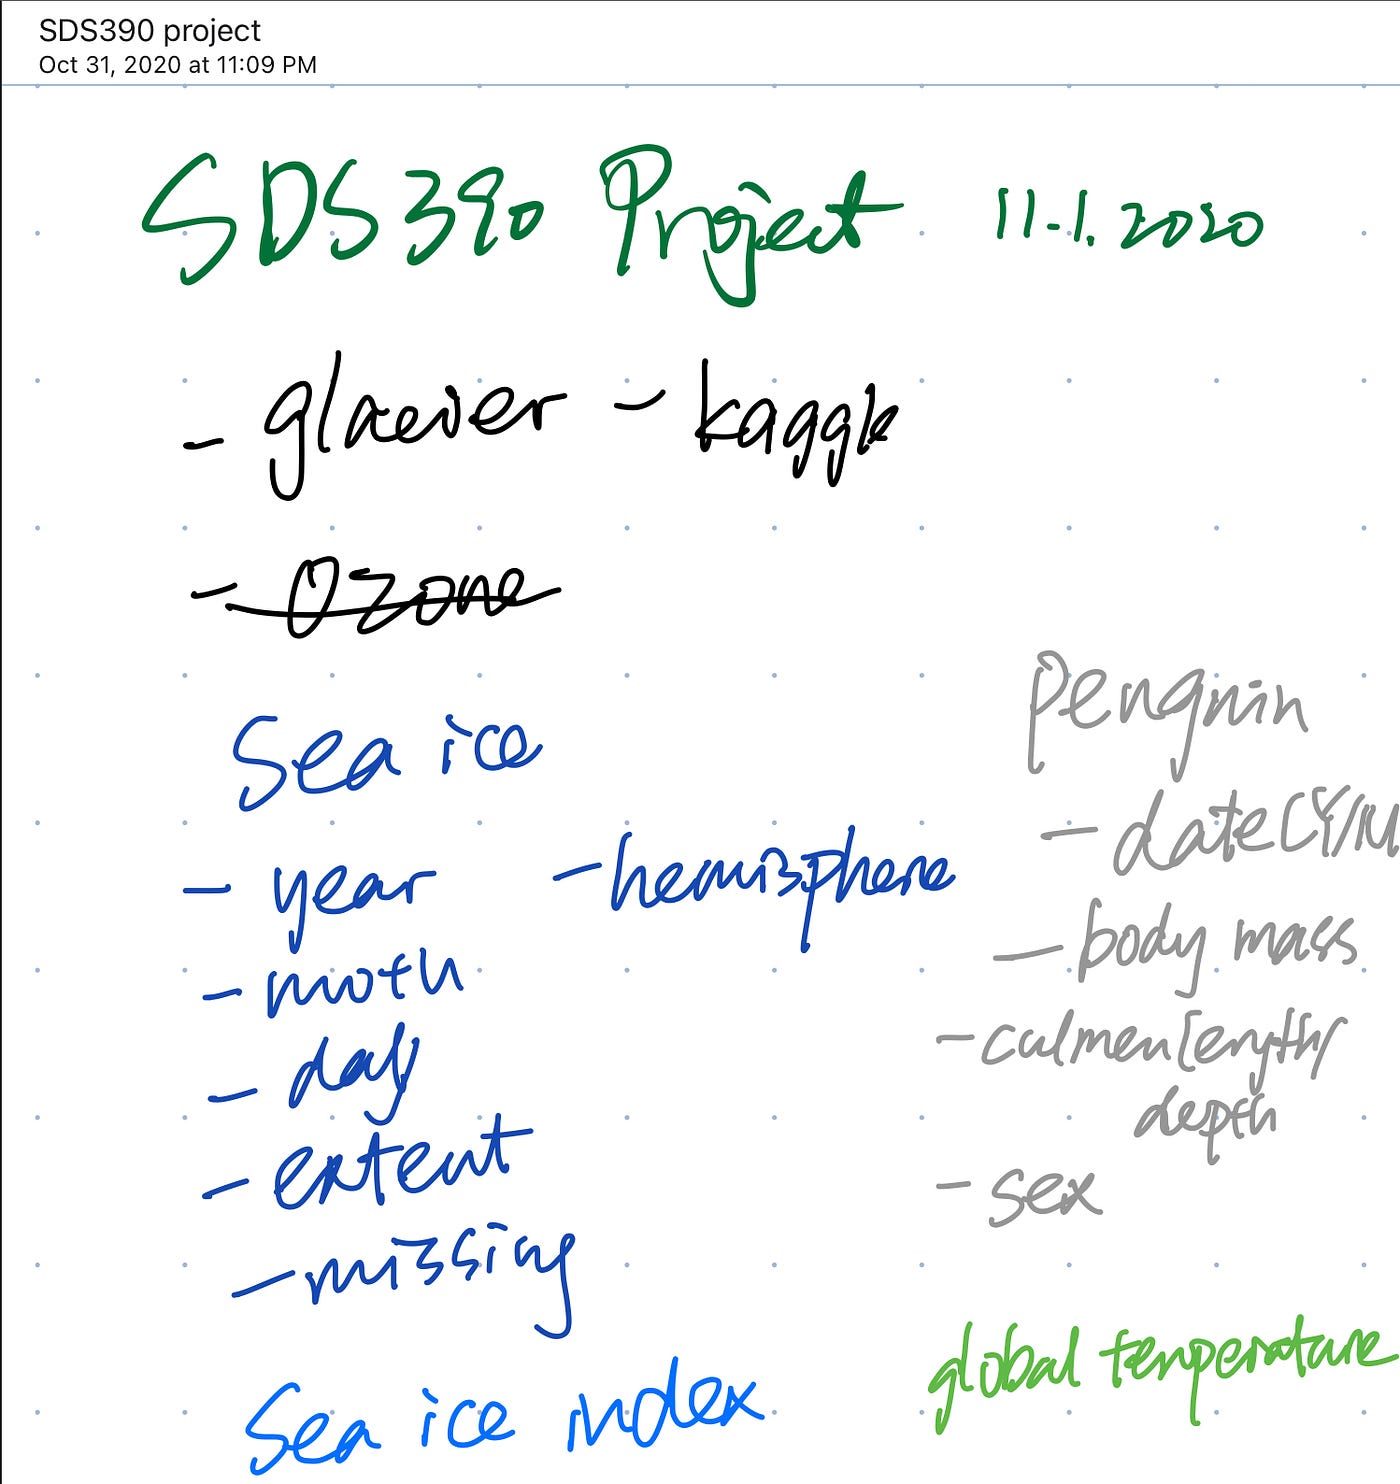 SDS390 project
Oct 31, 2020 at 11:09 PM
SDS390 Project 11.1.2020
- glacier - kaggle
- Ozone
Sea ice
- year - hemisphere
- moth
- day
- extent
- missing
Sea ice index
Penguin
- date (Y/M
- body mass
- culmen length/
depth
- sex
global temperature